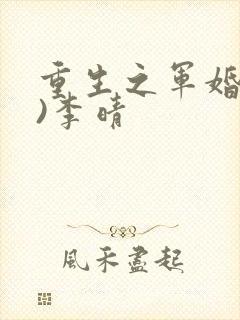 重生之军婚
)李晴
風禾盡起